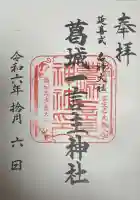 奉拝
延喜式 名神大社
葛城一言主神社
令和六年 拾月 六日